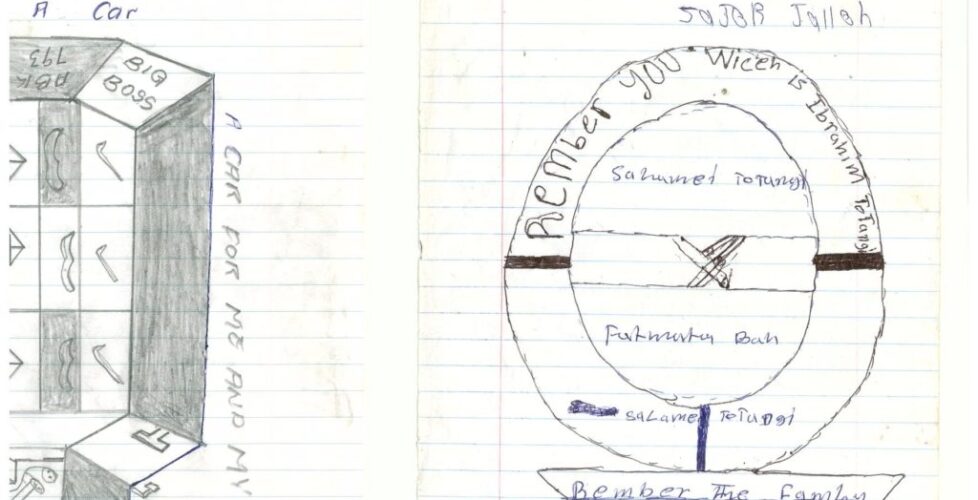 A Car
BIG
BOSS
ABK
793
A CAR FOR ME AND MY
SajoR Jalloh
REMber YOU Wiceh is Ibrahim ToTangi
Salamei ToTungi
Fatmata Bah
SaLame ToTungi
Rember The Family